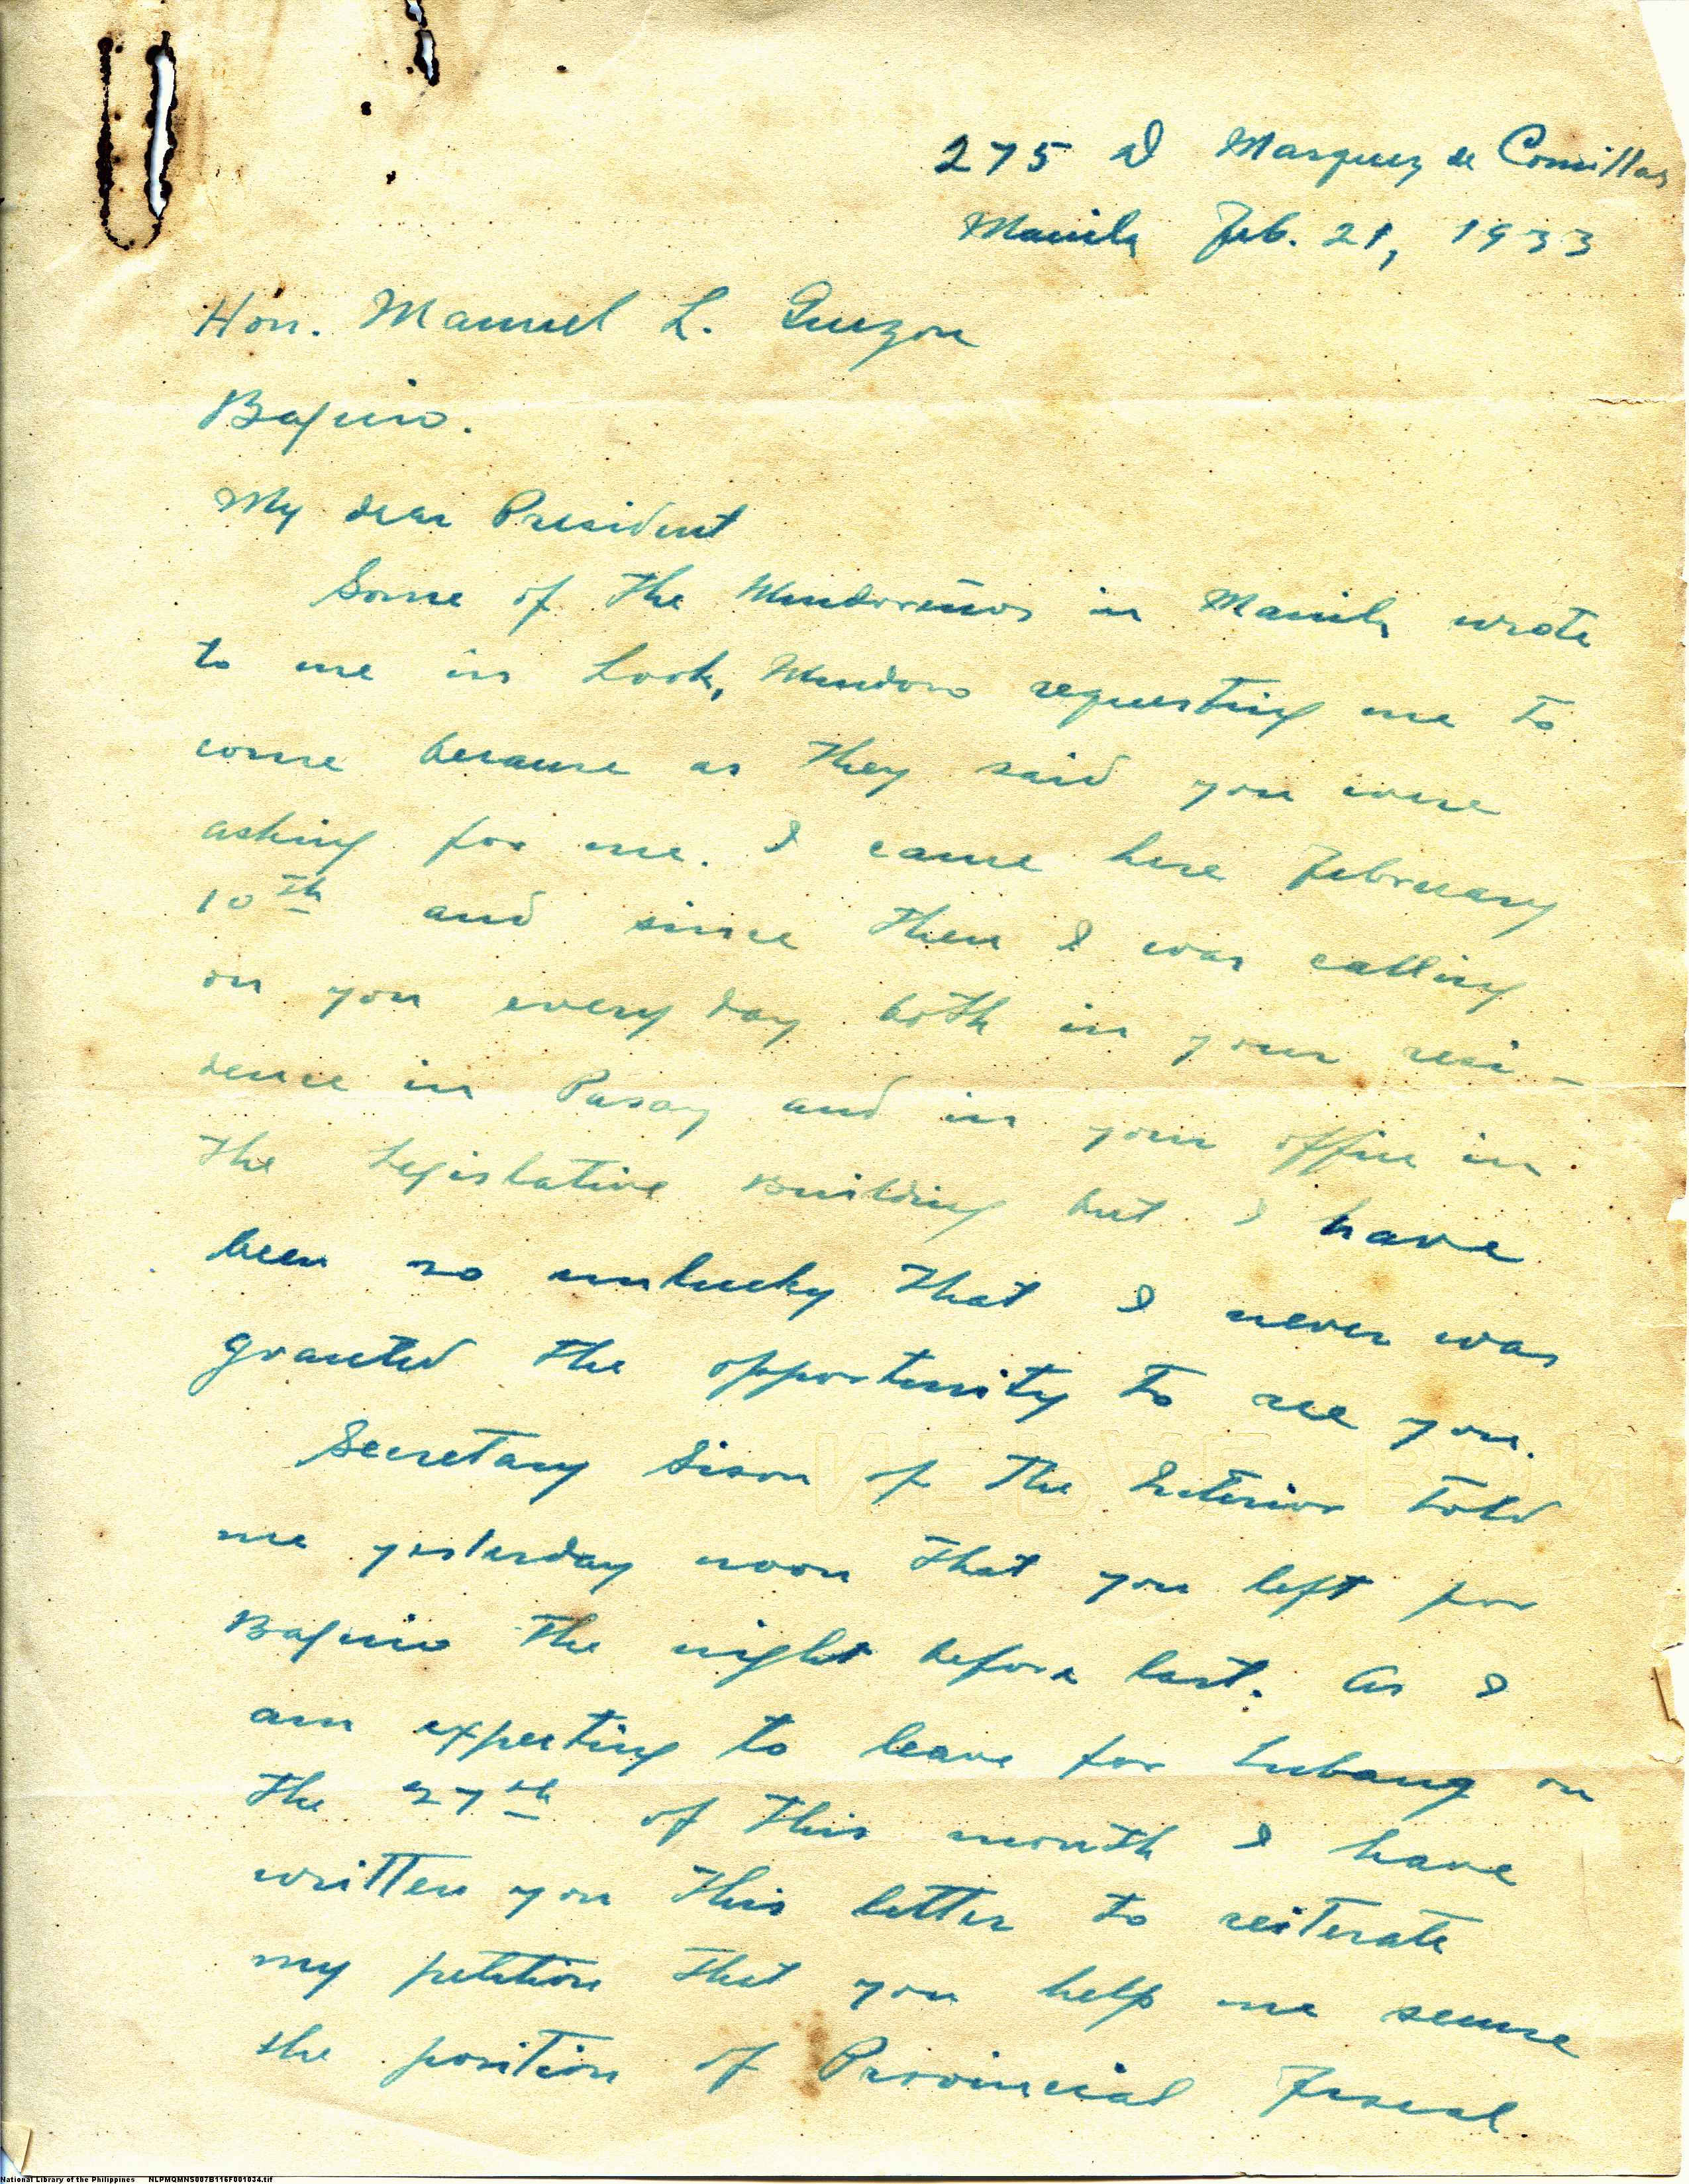 275 D Marquez de Comillas
Manila Feb. 21, 1933
Hon. Manuel L. Quezon
Baguio.
My dear President
Some of the Mindoreños in Manila wrote
to me in Look, Mindoro requesting me to
come because as they said you were
asking for me. I came here February
10th and since then I was calling
on you every day both in your resi-
dence in Pasay and in your office in
the Legislative Building but I have
been so unlucky that I never was
granted the opportunity to see you.
Secretary Sison of the Interior told
me yesterday noon that you left for
Baguio the night before last. As I
am expecting to leave for Lubang on
the 27th of this month I have
written you this letter to reiterate
my petition that you help me secure
the position of Provincial Fiscal
National Library of the Philippines NLPMQMNS007B116F001034.tif